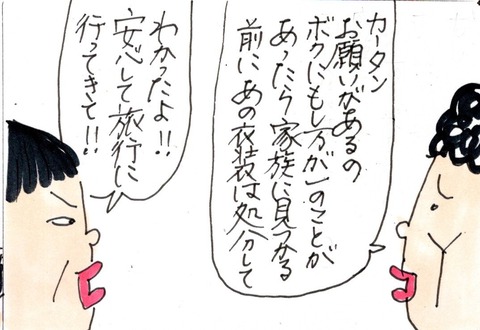 カータン
お願いがあるの
ボクにもし万が一のことが
あったら家族に見つかる
前にあの衣装は処分して
わかったよ!!
安心して旅行に
行ってきて!!